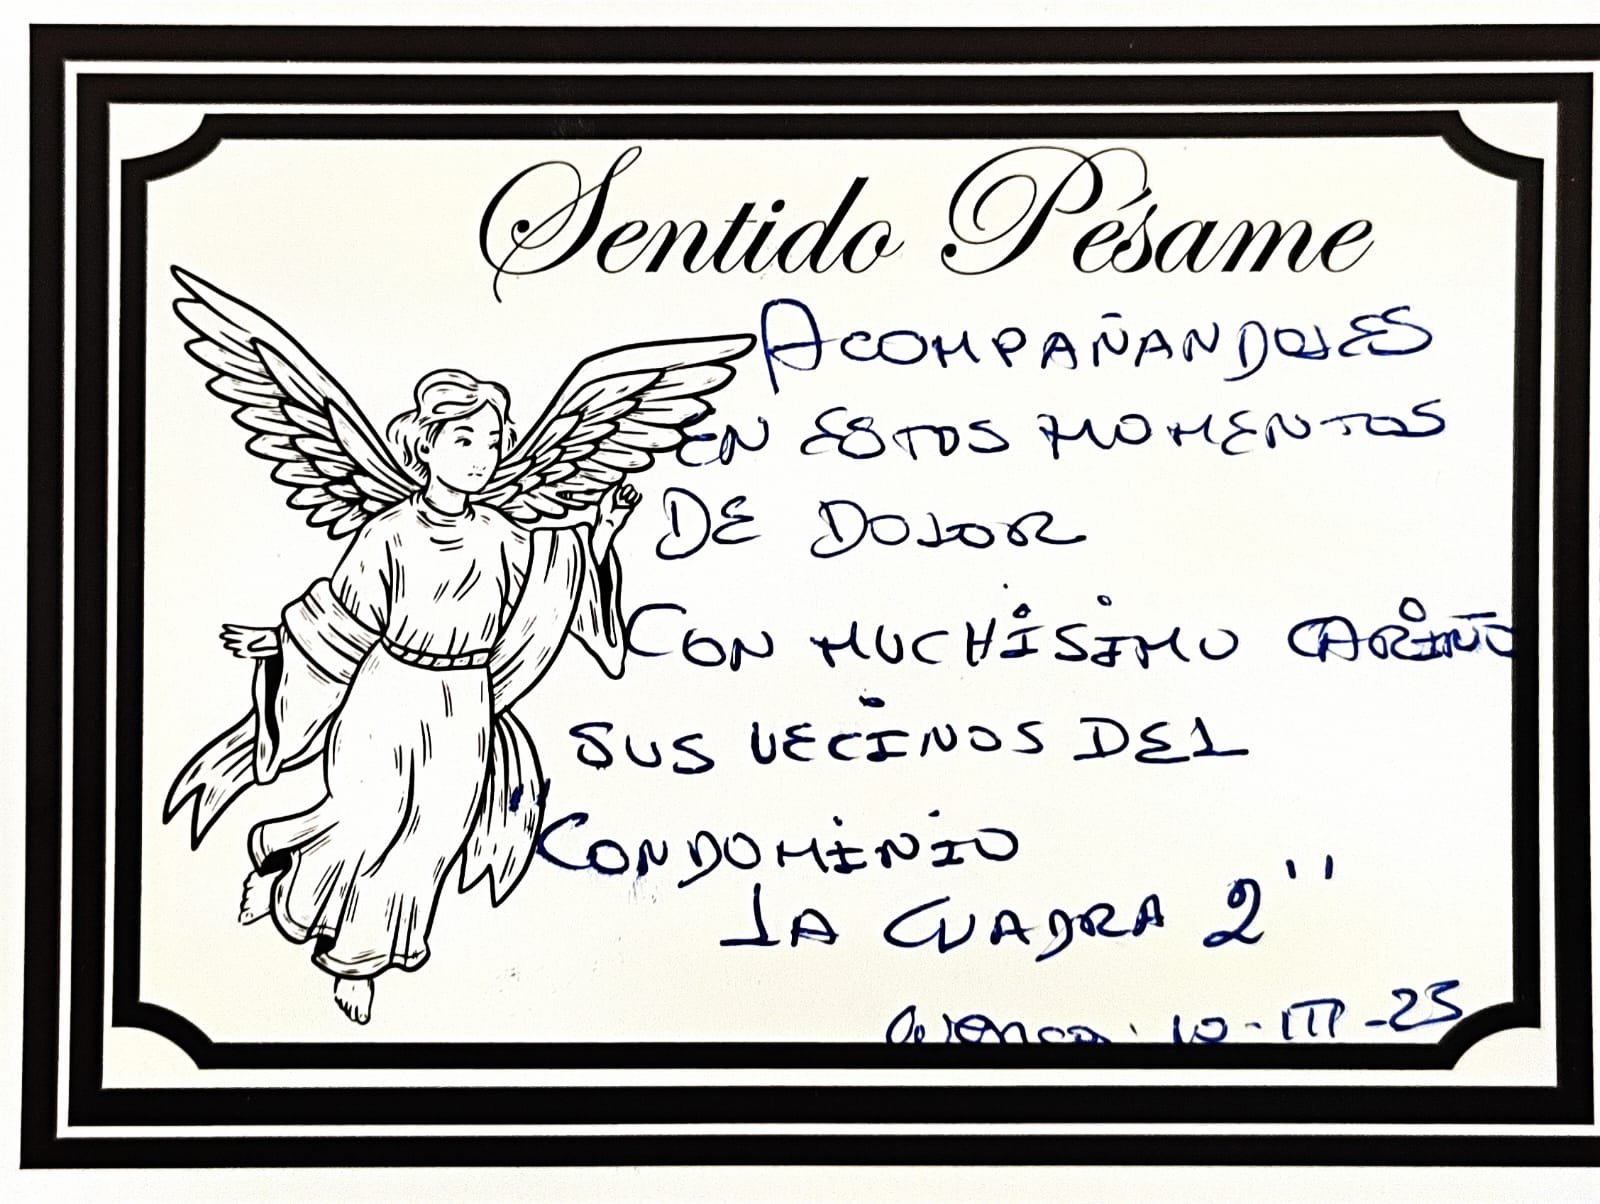 Sentido Pésame
ACOMPAÑANDOLES
EN ESTOS MOMENTOS
DE DOLOR
CON MUCHÍSIMO CARIÑO
SUS VECINOS DEL
"CONDOMINIO
LA CUADRA 2"
Cuenca. 10-III-25